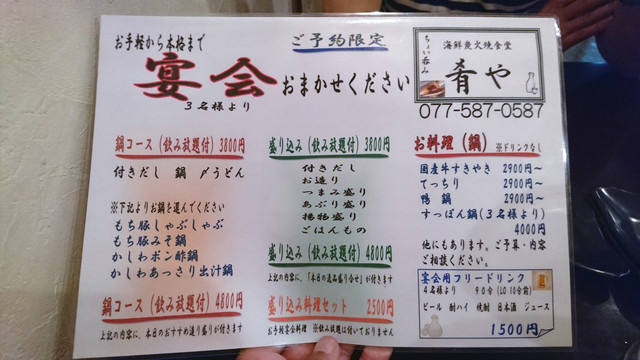 お手軽から本格まで
ご予約限定
宴会おまかせください
3名様より
ちょい呑み
海鮮炭火焼食堂
肴や
077-587-0587
鍋コース(飲み放題付)3800円
付きだし 鍋 〆うどん
※下記よりお鍋を選んでください
もち豚しゃぶしゃぶ
もち豚みそ鍋
かしわポン酢鍋
かしわあっさり出汁鍋
鍋コース(飲み放題付)4800円
上記の内容に、本日のおすすめ造り盛りが付きます
盛り込み(飲み放題付)3800円
付きだし
お造り
つまみ盛り
あぶり盛り
揚物盛り
ごはんもの
盛り込み(飲み放題付)4800円
上記の内容に、「本日の逸品盛り合せ」が付きます
盛り込み料理セット 2500円
お手軽宴会料理 ※飲み放題は付いておりません
お料理(鍋) ※ドリンクなし
国産牛すきやき 2900円~
てっちり 2900円~
鴨 鍋 2900円~
すっぽん鍋(3名様より)
4000円
他にもあります。ご予算・内容
ご相談ください。
宴会用フリードリンク
4名様より 90分(LO10分前)
ビール 酎ハイ 焼酎 日本酒 ジュース
1500円